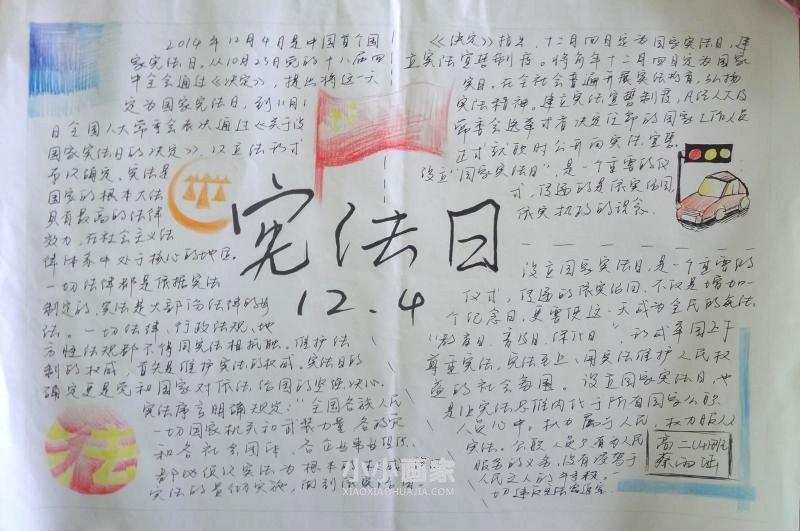 2014年12月4日是中国首个国
家宪法日。从10月23日党的十八届四
中全会通过《决定》，提出将这一天
定为国家宪法日，到11月1
日全国人大常委会表决通过《关于设
国家宪法日的决定》，以立法形式
予以确定。宪法是
国家的根本大法
具有最高的法律
效力，在社会主义法
律体系中处于核心的地位。
一切法律都是依据宪法
制定的，宪法是大部门法律的母
法。一切法律、行政法规、地
方性法规都不得同宪法相抵触。维护法
制的权威，首先是维护宪法的权威。宪法日的
确定更是党和国家对依法治国的坚定决心。
宪法序言明确规定：“全国各族人民
一切国家机关和武装力量 各政党
和各社会团体、各企业事业组织，
都必须以宪法为根本
宪法的
宪法日
12.4
《《决定》》指出，十二月四日定为国家宪法日，建
立宪法宣誓制度。将每年十二月四日定为国家
宪日。在全社会普遍开展宪法教育，弘扬
宪法精神。建立宪法宣誓制度，凡经人大及
常委会选举或者决定任命的国家工作人员
正式就职时公开向宪法宣誓
设立“国家宪法日”，是一个重要的仪
式，传递的是依宪治国，
依宪执政的理念.
设立国家宪法日，是一个重要的
仪式，传递的依宪治国，不仅是增加一
个纪念日，更要使这一天成为全民的宪法
“教育日、普及日、深化日” 形成举国上下
尊重宪法，宪法至上，用宪法维护人民权
益的社会氛围。设立国家宪法日，也
是让宪法思维内化于所有国家公职
人员心中。权力属于人民，权力服从
宪法。公职人员只有为人民
服务的义务，没有凌驾于
人民之上的特权。
一切违反宪法
高二
法
小小画家
XIAOXIAOHUAJIA.COM